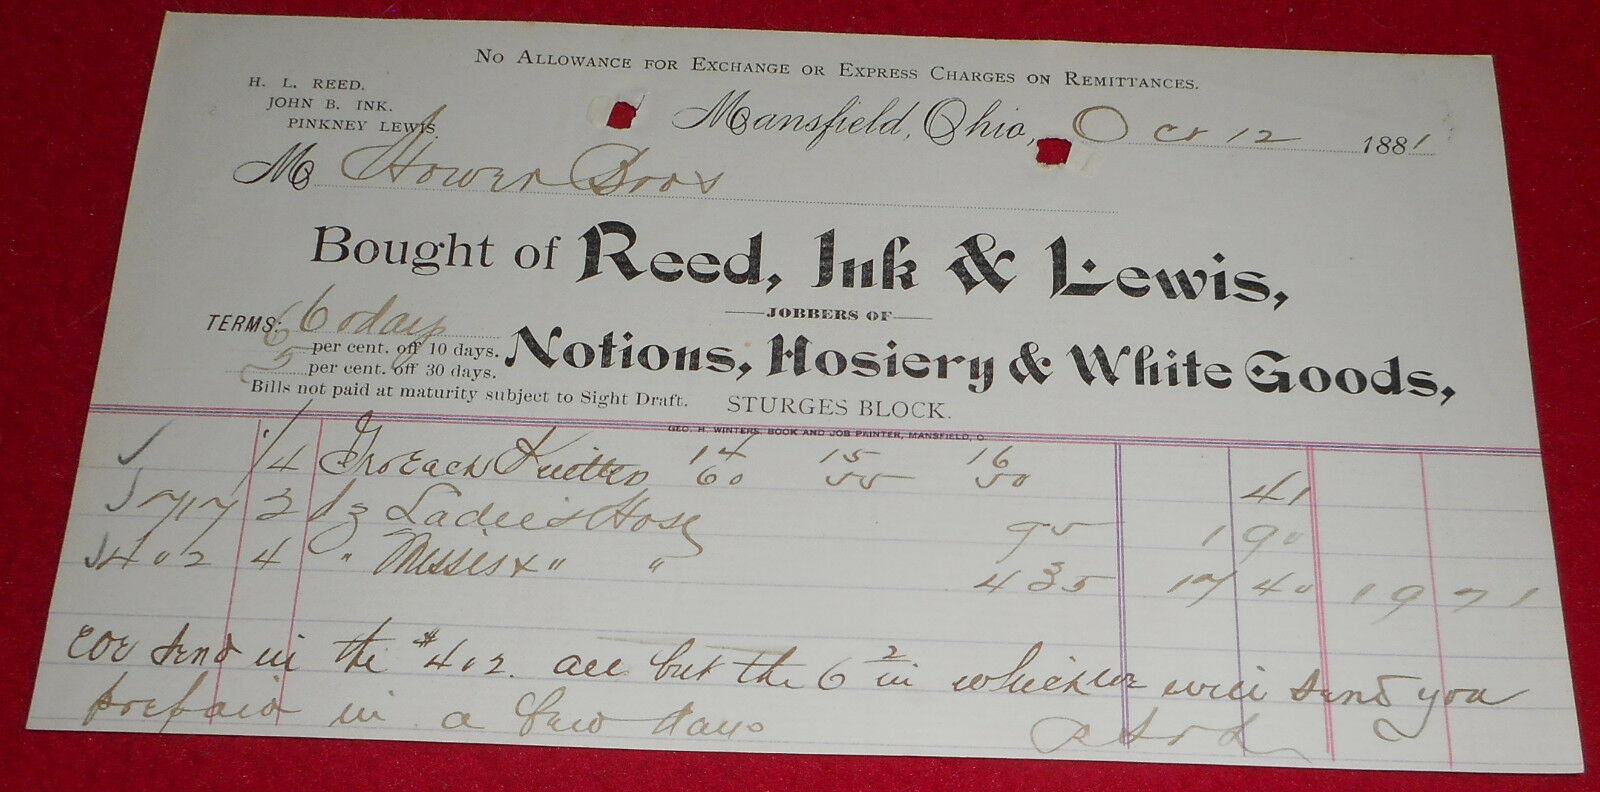 No Allowance for Exchange or Express Charges on Remittances.
H. L. REED.
JOHN B. INK.
PINKNEY LEWIS.
Mansfield, Ohio, Oct 12 1881
M Hower Bros
Bought of Reed, Ink & Lewis,
JOBBERS OF
TERMS: 60 days
6 per cent. off 10 days.
5 per cent. off 30 days.
Notions, Hosiery & White Goods,
Bills not paid at maturity subject to Sight Draft.
STURGES BLOCK.
GEO. H. WINTERS, BOOK AND JOB PRINTER, MANSFIELD, O.
1/4 Gro Each 14 15 16
60 55 50 41
717 2 Dz Ladies Hose 95 1 90
402 4 " Misses " " 435 17 40 19 71
We send in the #402 all but the 6 2 in which we will send you
prepaid in a few days